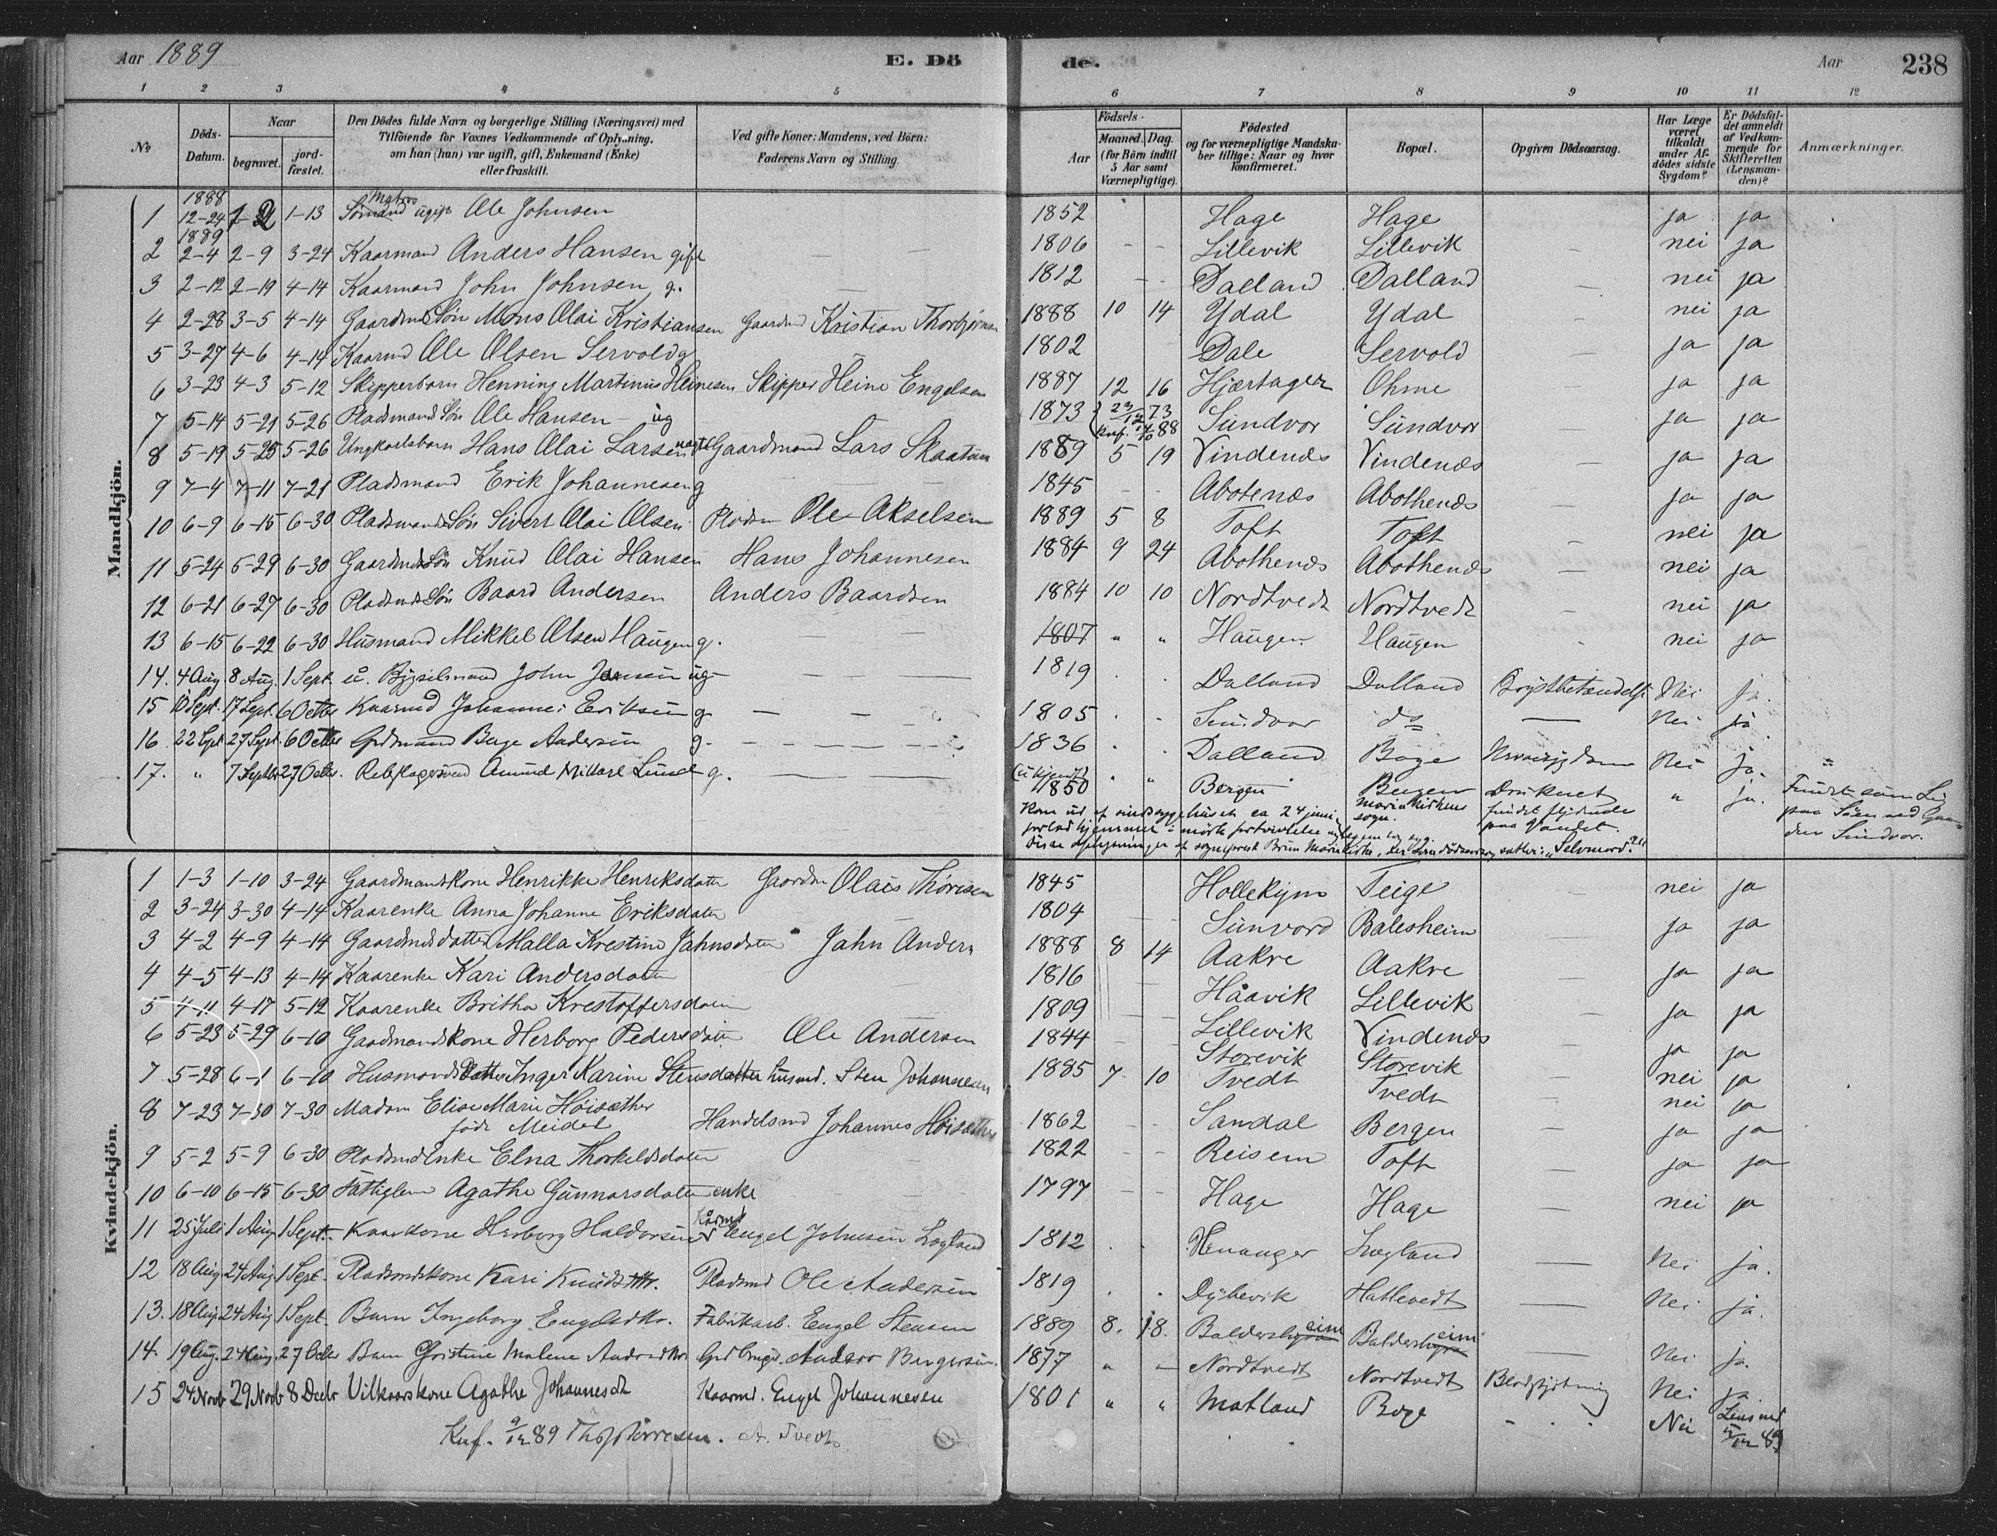 Aar 1889 E. Dö de. Aar 238
1 2 3 4 5 6 7 8 9 10 11 12
No
Döds-Datum.
Naar
begravet.
jord-fæstet.
Den Dödes fulde Navn og borgerlige Stilling (Næringsvei) med
Tilföiende for Voxnes Vedkommende af Oplysning,
om han (hun) var ugift, gift, Enkemand (Enke)
eller fraskilt.
Ved gifte Koner: Mandens, ved Börn:
Faderens Navn og Stilling.
Aar
Födsels-
Maaned. Dag.
(for Börn indtil
5 Aar samt
Værnepligtige).
Födested
og for værnepligtige Mandska-
ber tillige: Naar og hvor
konfirmeret.
Bopæl.
Opgiven Dödsaarsag.
Har Læge
været
tilkaldt
under Af-
dödes sidste
Sygdom?
Er Dödsfal-
det anmeldt
af Vedkom-
mende for
Skifteretten
(Lensman-
den)?
Anmærkninger.
Mandkjön.
1 1888 12-24 1-2 1-13 Sömand Matros ugift Ole Johnsen 1852 Hage Hage ja ja
2 1889 2-4 2-9 3-24 Kaarmand Anders Hansen gift 1806 Lillevik Lillevik nei ja
3 2-12 2-19 4-14 Kaarmand John Johnsen g. 1812 Dalland Dalland nei ja
4 2-28 3-5 4-14 Gaardmds Sön Mons Olai Kristiansen Gaardmd Kristian Thorbjørnsen 1888 10 14 Ydal Ydal nei ja
5 3-27 4-6 4-14 Kaarmd Ole Olsen Servold g 1802 Dale Servold ja ja
6 3-23 4-3 5-12 Skipperbarn Henning Martinus Heinesen Skipper Heine Engelsen 1887 12 16 Hjærtager Ohme ja ja
7 5-14 5-21 5-26 Pladsmands Sön Ole Hansen ug 1873 23/12 73 Knf. 88 Sundvor Sundvor ja ja
8 5-19 5-25 5-26 Ungkarlsbarn Hans Olai Larsen Gaardmand Lars Skaatun 1889 5 19 Vindenæs Vindenæs ja ja
9 7-4 7-11 7-21 Pladsmand Erik Johannesen g 1845 Abotenæs Abothenæs ja ja
10 6-9 6-15 6-30 Pladsmands Sön Sivert Olai Olsen Pladsm Ole Akselsen 1889 5 8 Toft Toft nei ja
11 5-24 5-29 6-30 Gaardmds Sön Knud Olai Hansen Hans Johannesen 1884 9 24 Abothenæs Abothenæs nei ja
12 6-21 6-27 6-30 Pladsmds Sön Baard Andersen Anders Baardsen 1884 10 10 Nordtvedt Nordtvedt nei ja
13 6-15 6-22 6-30 Husmand Mikkel Olsen Haugen g. 1807 " " Haugen Haugen nei ja
14. 4 Aug. 8 Aug. 1 Sept. John Jansen ug 1819 Dalland Dalland Brystbetændelse Nei ja.
15 10 Sept. 17 Sept. 6 Octbr Kaarmd Johannes Eriksen g. 1805 Sundvor do Nei ja
16. 22 Sept 27 Sept. 6 Octbr Grdmand Børge Andersen g. 1836 Dalland Boge Nei ja.
17. " 7 Septbr 27 Octbr. Rebslagersvend Amund Miltzel Lund g. (ukjent) 1850 " Bergen Bergen Mariakirkens sogn. Druknet fundet flydende paa Vandet. " ja. Fundet som Lig paa Söen ved Gaarden Sundvor.
Kom ud af sindssygehuset ca 24 juni,
forlod hjemmet i mörk fortvivlelse
Disse oplysninger af sogneprest Brun Mariakirke, der som dödsaarsag sætter: "Selvmord?"
Kvindekjön.
1 1-3 1-10 3-24 Gaardmandskone Henrikke Henriksdatter Gaardm Olais Thoresen 1845 Hollekjøn Teige nei ja
2 3-24 3-30 4-14 Kaarenke Anna Johanne Eriksdatter 1804 Sunvord Balesheim ja ja
3 4-2 4-9 4-14 Gaardmdsdatter Malla Krestine Jahnsdatter Jahn Anders 1888 8 14 Aakre Aakre
4 4-5 4-13 4-14 Kaarenke Kari Andersdatter 1816 Håavik Lillevik ja ja
5 4-11 4-17 5-12 Kaarenke Britha Krestoffersdatter 1809 Lillevik Vindenæs ja ja
6 5-23 5-29 6-10 Gaardmandskone Herborg Pedersdatter Ole Andersen 1844 Storevik Storevik ja ja
7 5-28 6-1 6-10 Husmandsdatter Inger Karine Stensdatter husmd. Sten Johannesen 1885 7 10 Tvedt Tvedt nei ja
8 7-23 7-30 7-30 Madam Elise Marie Höisæther födt Meidel Handelsmd Johannes Höisæther 1862 Sandal Bergen nei ja
9 5-2 5-9 6-30 Pladsmdenke Elna Thorkildsdatter 1822 Reisem Toft ja ja
10 6-10 6-15 6-30 Fattiglem Agathe Gunnarsdatter enke 1797 Hage Hage nei ja
11 25 Juli 1 Aug. 1 Sept. Kaarkone Herborg Haldorsen Kårmd Engel Johnsen Løgland 1812 Henanger Løgland Nei ja.
12 18 Aug. 24 Aug. 1 Sept. Pladsmdskone Kari Knudsdtr. Pladsmd Ole Andersen 1819 Dybevik Hatlevedt Nei ja.
13. 18 Aug 24 Aug 1 Sept. Barn Ingeborg Engelsdtr. Fabrikarb. Engel Stensen 1889 8. 18. Baldersheim Baldersheim Nei ja.
14. 19 Aug. 24 Aug. 27 Octbr Barn Christine Malene Andersdtr Grdbruger Anders Børgersen 1877 " Nordtvedt Nordtvedt Blodspytning Nei ja
15 24 Novb 29 Novb 8 Decbr Vilkaarskone Agathe Johannesdt Kaarmd. Engel Johannesen 1801 " " Matland Boge Nei Lensmd 5/12 89
Knf. 9/12 89 Ths. Torresen. A. Tvedt